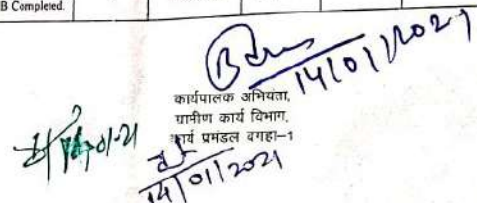 B Completed.
14/01/2021
कार्यपालक अभियंता,
ग्रामीण कार्य विभाग,
कार्य प्रमंडल बगहा-1
14/01/2021